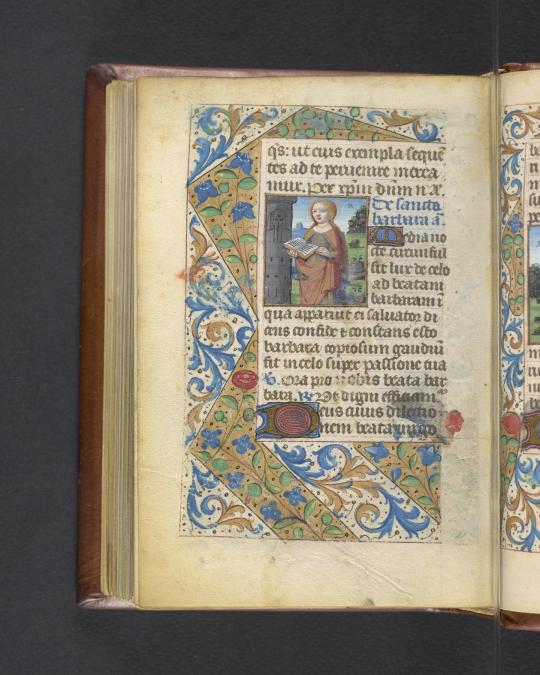 qs: ut eius exempla seque
tes ad te peruenire merea
mur. Per xpm dnm n. A.
De sancta
barbara ā.
Media no
cte circunful
sit lux de celo
ad beatam
barbaram i
qua apparuit ei saluator di
cens confide & constans esto
barbara copiosum gaudiū
sit in celo super passione tua
v. Ora pro nobis beata bar
bara. R. Vt digni efficiam
Deus cuius dilectio
nem beata virgo